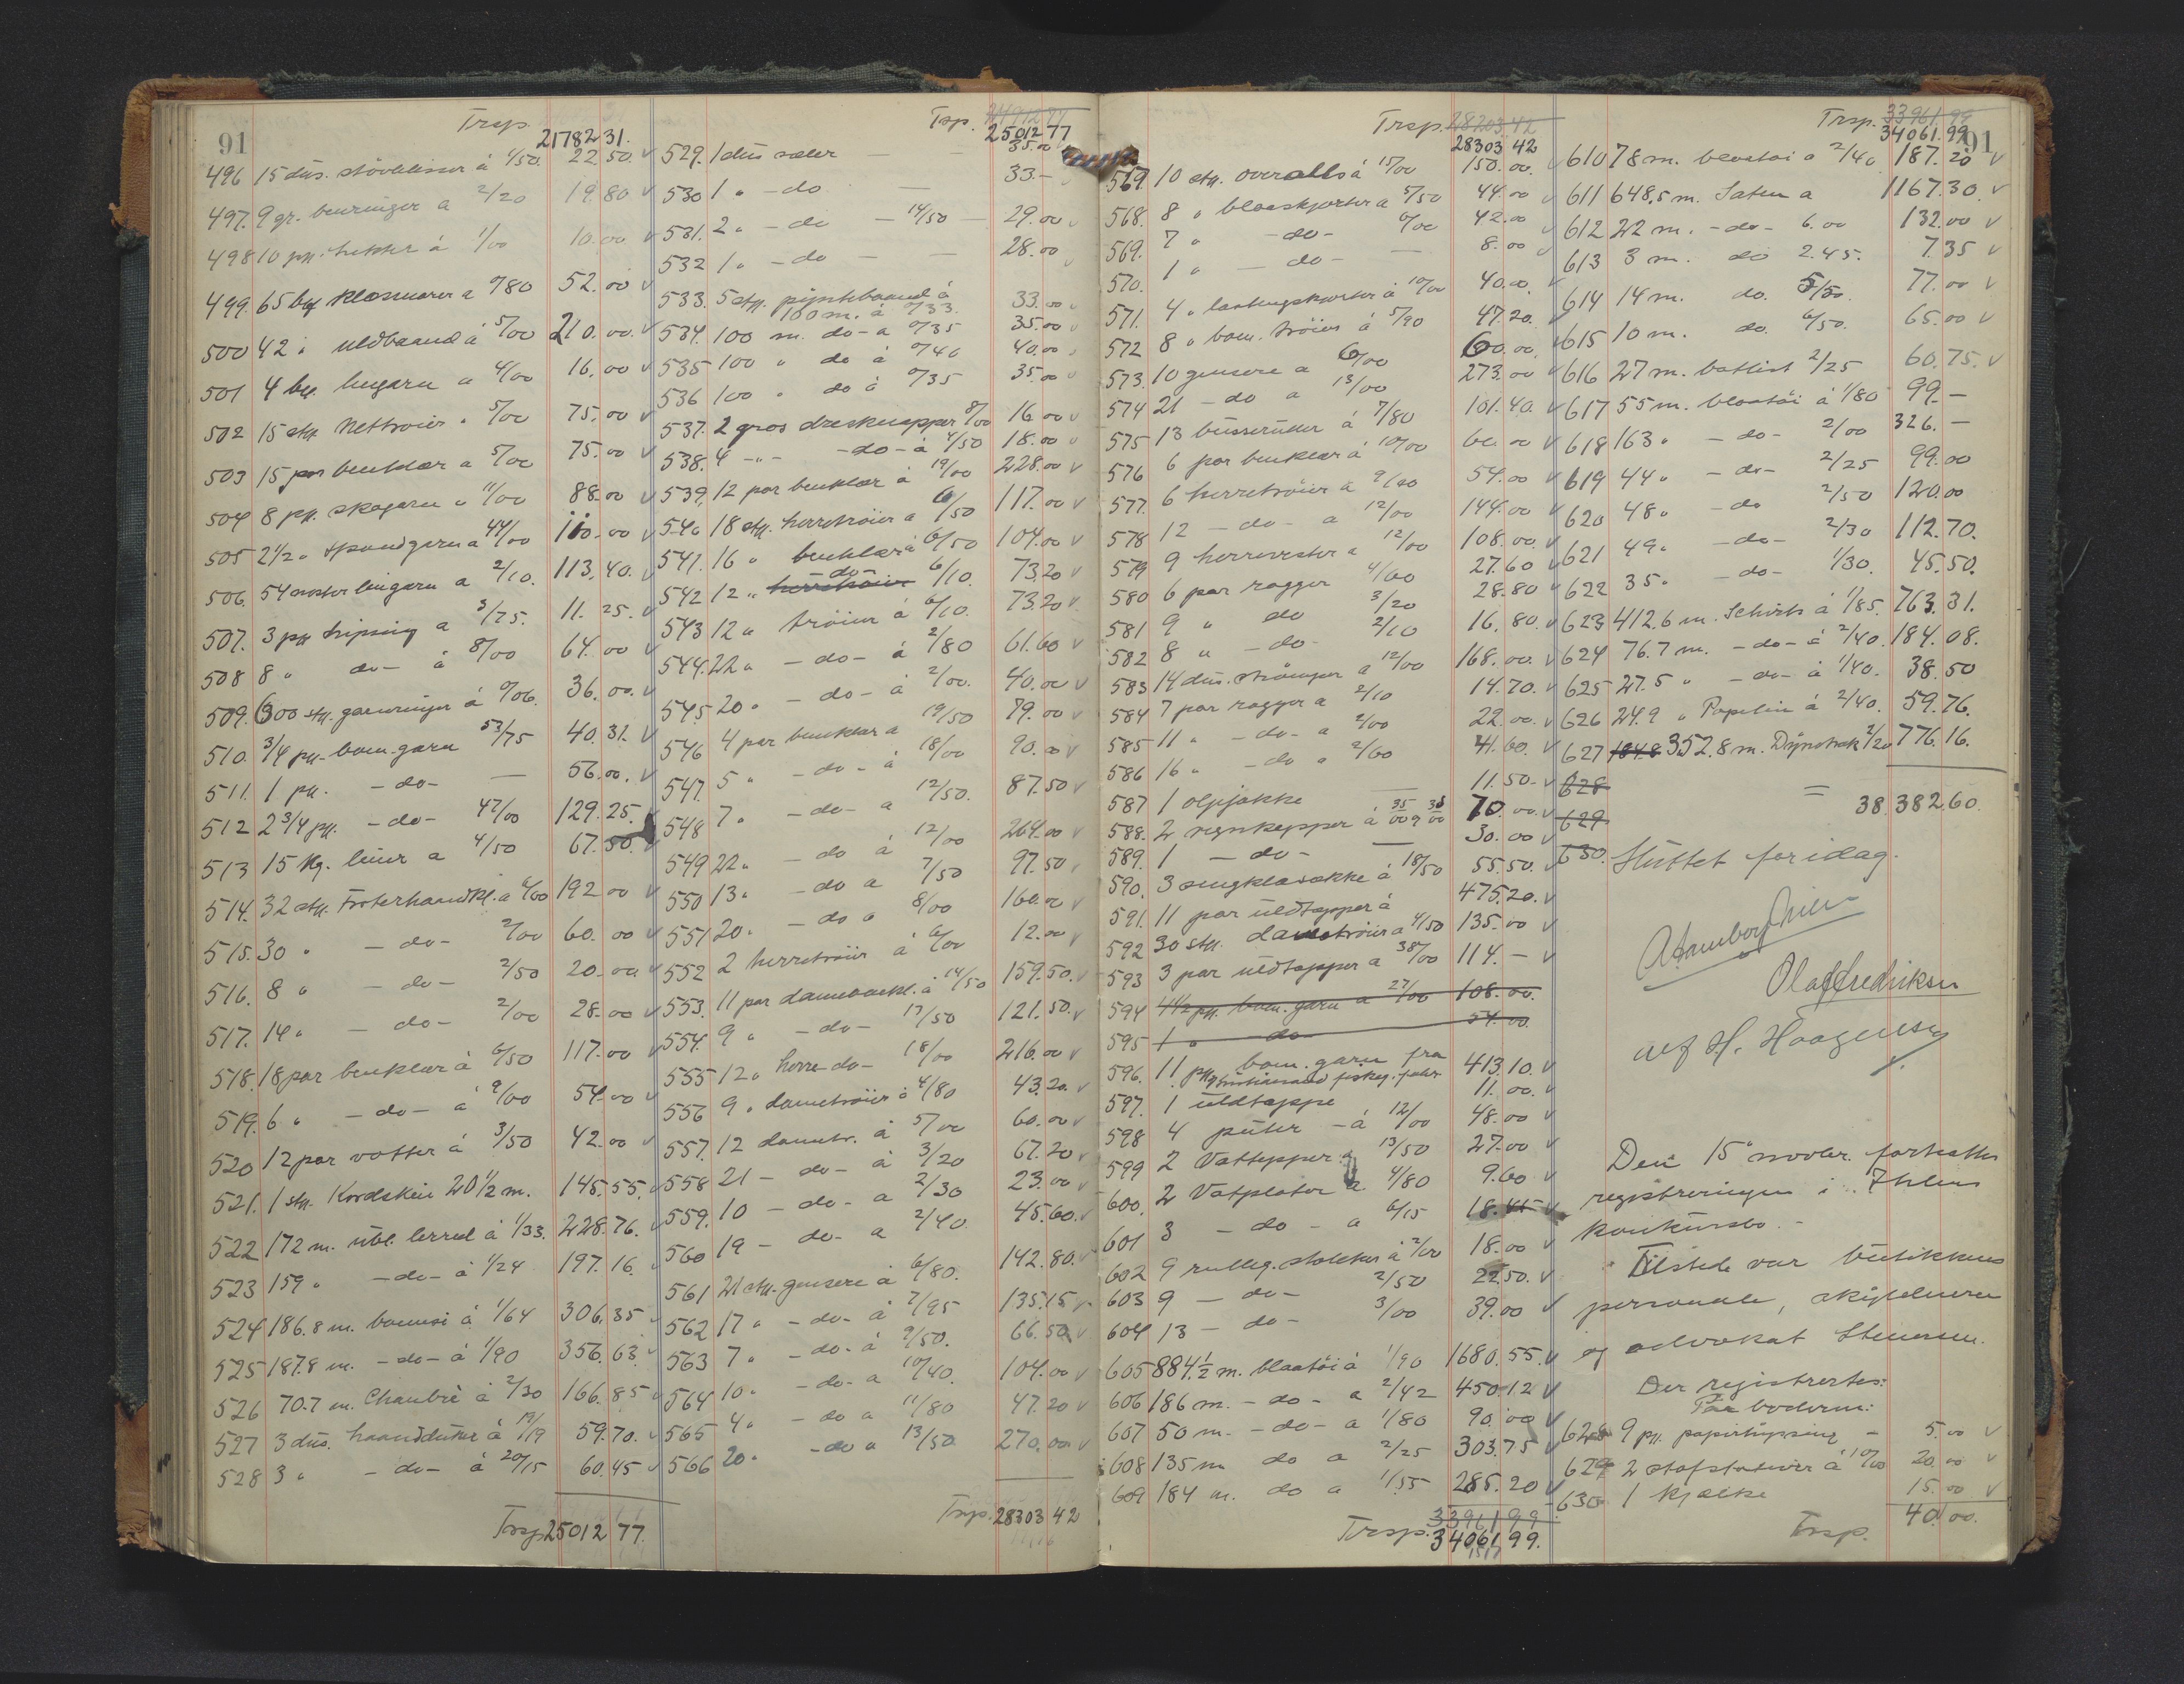 91
Trsp. 21782 31.
496 15 dus. støvlelisser á 1/50 22 50. v
497. 9 gr. benringer a 2/20 19. 80 v
498 10 pk. hekter á 1/00 10. 00. v
499. 65 bgt klosnarer a 0/80 52. 00 v
500 42 " uldbaand á 5/00 210. 00. v
501 4 bg. lingarn a 4/00 16. 00 v
502 15 stk Nettroier " 5/00 75. 00 v
503 15 par benklær a 5/00 75. 00 v
504 8 pk. skogarn a 11/00 88. 00 v
505 2 1/2 " spundgarn a 44/00 110. 00 v
506. 54 lingarn a 2/10. 113. 40. v
507. 3 pk hipsing a 3/75. 11. 25. v
508 8 " do- á 8/00 64. 00 v
509. 600 stk. garnringer á 0/06. 36. 00. v
510. 3/4 pk- bom. garn 53/75 40. 31. v
511. 1 pk. - do- — 56. 00. v
512 2 3/4 pk. - do- 47/00 129. 25. v
513 15 kg. liner a 4/50 67. 50. v
514. 32 stk. Froterhaandkl. a 6/00 192 00 v
515. 30 " - do- 2/00 60. 00 v
516. 8 " - do- 2/50 20. 00 v
517. 14 " - do- 2/00 28. 00 v
518. 18 par benklær á 6/50 117. 00 v
519. 6 " - do- á 9/00 54. 00 v
520 12 par votter á 3/50 42. 00 v
521. 1 stk. Kordskin 20 1/2 m. 145. 55. v
522 172 m. ubl. lerred á 1/33. 228. 76. v
523 159 " - do- á 1/24 197. 16. v
524 186.8 m. bomesi á 1/64 306. 35 v
525 187.8 m. - do- á 1/90 356. 63 v
526 70.7 m. Chambré á 2/30 166. 85 v
527 3 dus. haandduker á 19/19 59. 70. v
528 3 " - do- á 20/15 60. 45 v
Trsp. 25012 77.
Trsp. 24912 77
25012 77
529. 1 dus sæler — — 35. 00
530 1 " - do — 33. -
531. 2 " - do — 14/50 — 29. 00 v
532 1 " - do — — 28. 00 v
533. 5 stk. pyntebaand á
160 m. á 0/33. 33. 00 v
534. 100 m. do- a 0/35 35. 00 v
535 100 " do á 0/40 40. 00 v
536 100 " do á 0/35 35. 00 v
537. 2 gros dresknapper 8/00 16. 00 v
538. 4 -"- -do- á 4/50 18. 00 v
539. 12 par benklær á 19/00 228. 00 v
540 18 stk. herretrøier a 6/50 117. 00 v
541. 16 " benklær á 6/50 104. 00 v
542 12 " herretrøier do- 6/10. 73. 20 v
543 12 " trøier á 6/10. 73. 20 v
544. 22 " - do- á 2/80 61. 60 v
545 20 " - do- á 2/00. 40. 00 v
546 4 par benklær a 19/50 79. 00 v
547. 5 " - do- á 18/00 90. 00 v
548 7 " - do- a 12/50. 87. 50 v
549 22 " - do á 12/00 264. 00 v
550 13 " - do a 7/50 97. 50 v
551 20 " - do a 8/00 160. 00 v
552 2 herretrøier á 6/00 12. 00 v
553. 11 par damebenkl. á 14/50 159. 50. v
554. 9 " - do- 13/50 121. 50. v
555 12 " herre- do- 18/00 216. 00 v
556 9 " dametrøier á 4/80 43. 20. v
557. 12 dametr. á 5/00 60. 00 v
558 21 - do- á 3/20 67. 20 v
559. 10 - do- a 2/30 23. 00 v
560 19 - do- a 2/40. 45. 60. v
561 21 stk. gensere á 6/80. 142. 80. v
562 17 " - do- á 7/95 135. 15 v
563 7 " - do- á 9/50. 66. 50 v
564 10 " - do- a 10/40. 104. 00 v
565 4 " - do a 11/80 47. 20 v
566 20 " - do a 13/50 270. 00 v
Trsp. 28303 42
Trsp. 28203 42
28303 42
567. 10 stk. overalls á 15/00 150. 00. v
568. 8 " blaaskjorter a 5/50 44. 00 v
569. 7 " - do- 6/00 42. 00
570. 1 " - do- — 8. 00 v
571. 4 " lastingskorter á 10/00 40. 00. v
572 8 " bom. trøier á 5/90 47. 20. v
573. 10 gensere a 6/00 60. 00. v
574 21 - do a 13/00 273. 00 v
575 13 busseruller á 7/80 101. 40. v
576 6 par benklær á 10/00 60. 00 v
577. 6 herretrøier a 9/00 54. 00 v
578 12 - do- a 12/00 144. 00 v
579 9 herrevester a 12/00 108. 00. v
580 6 par ragger 4/60 27. 60 v
581 9 " do 3/20 28. 80 v
582 8 " - do- 2/10 16. 80. v
583 14 dus. strømper a 12/00 168. 00. v
584 7 par ragger a 2/10 14. 70. v
585 11 " - do- a 2/00 22. 00. v
586 16 " - do a 2/60 41. 60. v
587 1 oljejakke — 11. 50. v
588. 2 regnkapper á 35/00 a 35/00 70. 00. v
589. 1 - do- — 30. 00 v
590. 3 sengklasække á 18/50 55. 50. v
591. 11 par uldtepper á 475. 20. v
592 30 stk. dametrøier a 4/50 135. 00 v
593 3 par uldtepper a 38/00 114. — v
594 4 1/2 pk. bom. garn a 27/00 108. 00.
595 1 " do 54. 00.
596. 11 pk bom. garn fra
Kristiansand fiskeg. fabr 413. 10. v
597. 1 uldteppe 11. 00. v
598 4 puter - á 12/00 48. 00 v
599 2 Vattepper a 13/50 27. 00 v
600. 2 Vatplater a 4/80 9. 60 v
601 3 - do- a 6/15 18. 45 v
602 9 rulleg. stokker á 2/00 18. 00 v
603 9 - do- 2/50 22 50. v
604 13 - do- 3/00 39. 00 v
605 884 1/2 m. blaatöi á 1/90 1680. 55. v
606 186 m. - do- a 2/42 450. 12 v
607 50 m. - do- a 1/80 90. 00 v
608 135 m do a 2/25 303. 75 v
609 184 m. do a 1/55 285. 20 v
33961 99
Trsp. 34061 99.
Trsp. 33961 99
34061. 99
91
610 78 m. blaatøi a 2/40 187. 20 v
611 648,5 m. Saten a 1167. 30. v
612 22 m. - do- 6.00 132. 00 v
613 3 m. do 2.45. 7. 35 v
614 14 m. do. 5/50. 77. 00 v
615 10 m. do 6/50. 65. 00 v
616 27 m. batist 2/25 60. 75. v
617 55 m. blaatöi á 1/80 99. —
618 163 " - do- 2/00 326. —
619 44 " - do- 2/25 99. 00
620 48 " - do 2/50 120. 00
621 49 " - do- 2/30 112. 70.
622 35 " - do- 1/30. 45. 50.
623 412.6 m. Schirts á 1/85. 763. 31.
624 76.7 m. - do- á 2/40. 184. 08.
625 27.5 " - do- á 1/40. 38. 50
626 24.9 " Popelin á 2/40. 59. 76.
627 184.8 352.8 m. Dynetrek 2/20 776. 16.
628
629 = 38 382 60.
630. Sluttet foridag.
Olaf Fredriksen
H. Haagensen
Den 15 novbr. fortsattes
registreringen i Ihlens
konkursbo. -
Tilstede var butikkens
personale, skifteherren
og advokat Stenersen.
Der registrertes:
Paa boderne:
628 9 pk. papirhyssing - 5. 00 v
629 2 stofstativer á 10/00 20. 00 v
630 1 kjælke 15. 00 v
Trsp. 40. 00.